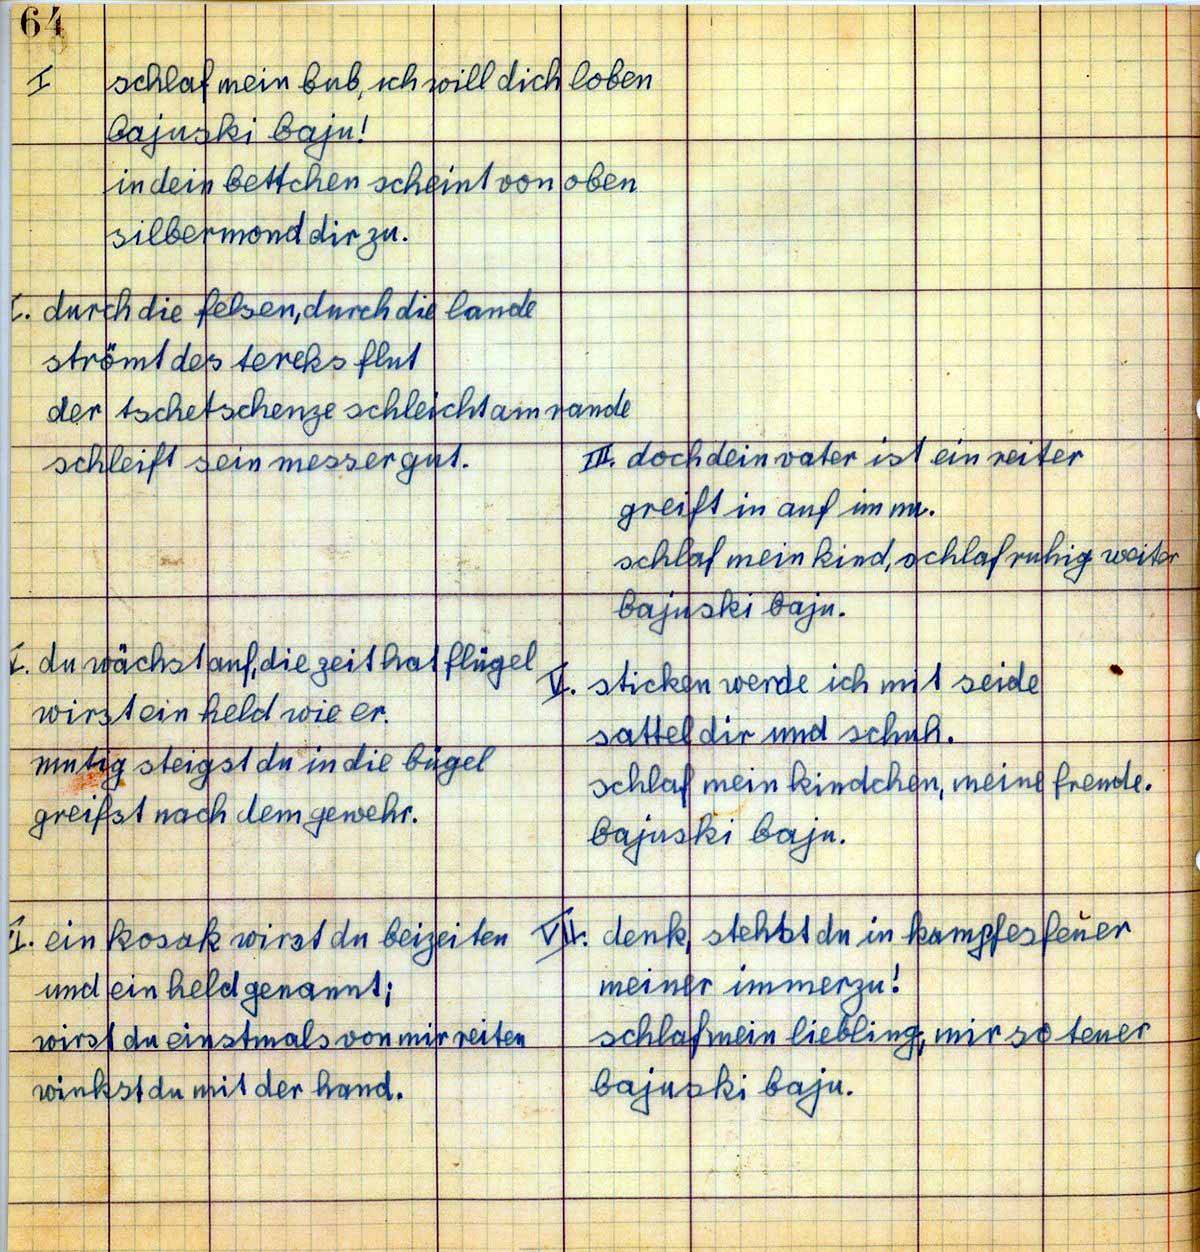 64
I schlaf mein bub, ich will dich loben
bajuski baju!
in dein bettchen scheint von oben
silbermond dir zu.
I. durch die felsen, durch die lande
strömt des tereks flut
der tschetschenze schleicht am rande
schleift sein messer gut.
III. doch dein vater ist ein reiter
greift in auf im nu.
schlaf mein kind, schlaf ruhig weiter
bajuski baju.
I. du wächst auf, die zeit hat flügel
wirst ein held wie er.
mutig steigst du in die bügel
greifst nach dem gewehr.
V. sticken werde ich mit seide
sattel dir und schuh.
schlaf mein kindchen, meine freude.
bajuski baju.
I. ein kosak wirst du beizeiten
und ein held genannt;
wirst du einstmals von mir reiten
winkst du mit der hand.
VII. denk, stehtst du in kampfesfeuer
meiner immerzu!
schlaf mein liebling, mir so teuer
bajuski baju.